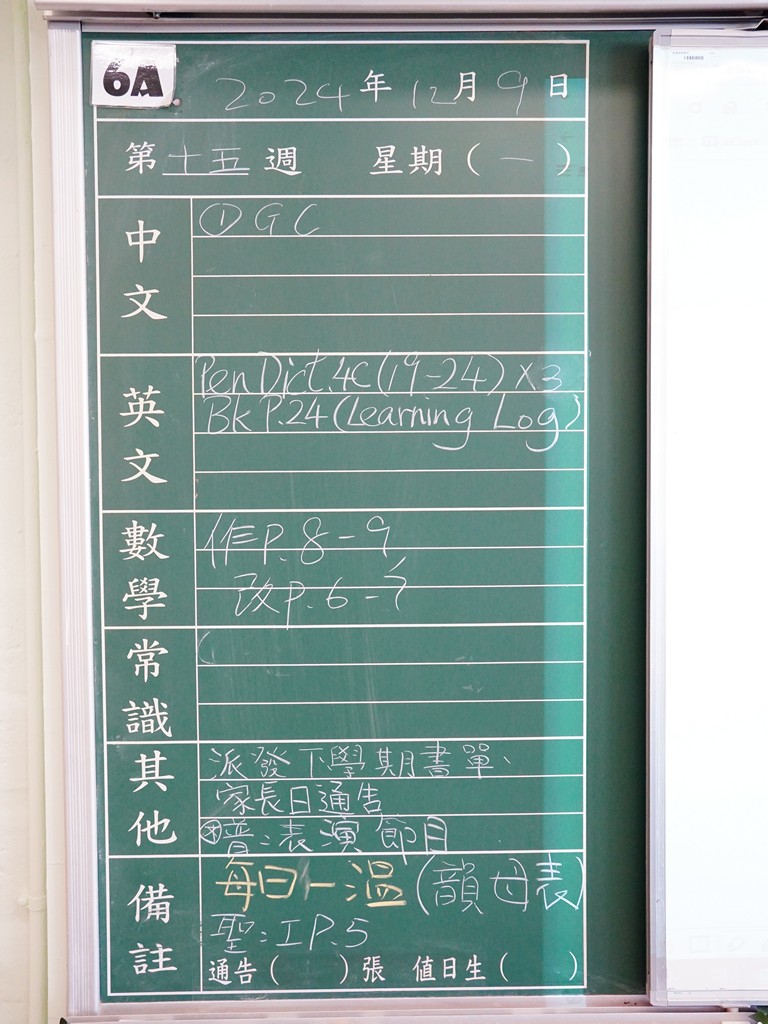 6A
2024年12月9日
第十五週 星期(一)
中文
①GC
英文
Pen Dict. 4C (19-24) x3
Bk P.24 (Learning Log)
數學
作P.8-9
改P.6-7
常識
其他
派發下學期書單、
家長日通告
普:表演節目
備註
每日一溫(韻母表)
聖:工P.5
通告( )張 值日生( )